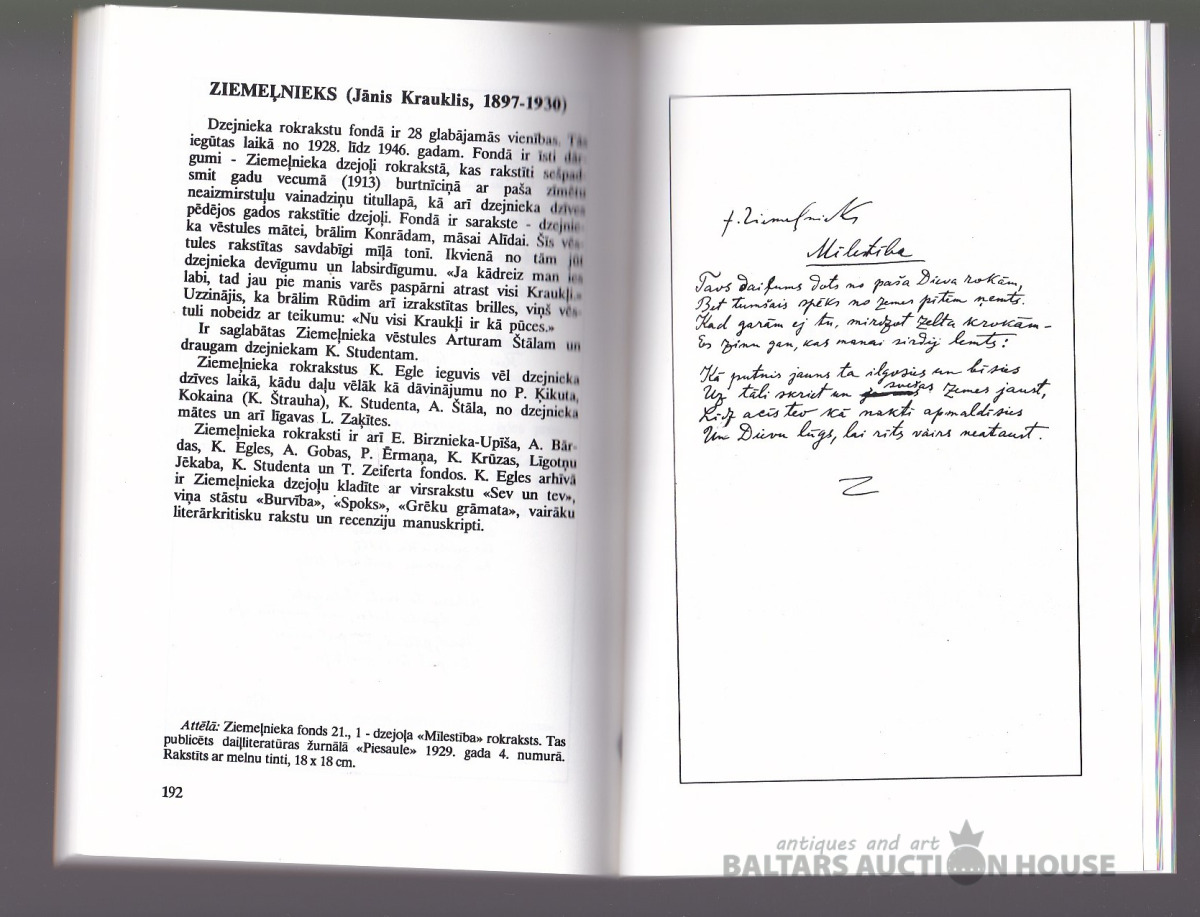 ZIEMEĻNIEKS (Jānis Krauklis, 1897-1930)
Dzejnieka rokrakstu fondā ir 28 glabājamās vienības. Tās
iegūtas laikā no 1928. līdz 1946. gadam. Fondā ir īsti dār-
gumi - Ziemeļnieka dzejoļi rokrakstā, kas rakstīti sešpad-
smit gadu vecumā (1913) burtnīciņā ar paša zīmētu
neaizmirstuļu vainadziņu titullapā, kā arī dzejnieka dzīves
pēdējos gados rakstītie dzejoļi. Fondā ir sarakste - dzejnie-
ka vēstules mātei, brālim Konrādam, māsai Alīdai. Šīs vēs-
tules rakstītas savdabīgi mīļā tonī. Ikvienā no tām jūt
dzejnieka devīgumu un labsirdīgumu. «Ja kādreiz man ies
labi, tad jau pie manis varēs paspārni atrast visi Kraukļi.»
Uzzinājis, ka brālim Rūdim arī izrakstītas brilles, viņš vēs-
tuli nobeidz ar teikumu: «Nu visi Kraukļi ir kā pūces.»
Ir saglabātas Ziemeļnieka vēstules Arturam Štālam un
draugam dzejniekam K. Studentam.
Ziemeļnieka rokrakstus K. Egle ieguvis vēl dzejnieka
dzīves laikā, kādu daļu vēlāk kā dāvinājumu no P. Ķikuta,
Kokaina (K. Štrauha), K. Studenta, A. Štāla, no dzejnieka
mātes un arī līgavas L. Zaķītes.
Ziemeļnieka rokraksti ir arī E. Birznieka-Upīša, A. Bār-
das, K. Egles, A. Gobas, P. Ērmaņa, K. Krūzas, Līgotņu
Jēkaba, K. Studenta un T. Zeiferta fondos. K. Egles arhīvā
ir Ziemeļnieka dzejoļu kladīte ar virsrakstu «Sev un tev»,
viņa stāstu «Burvība», «Spoks», «Grēku grāmata», vairāku
literārkritisku rakstu un recenziju manuskripti.
Attēlā: Ziemeļnieka fonds 21., 1 - dzejoļa «Mīlestība» rokraksts. Tas
publicēts daiļliteratūras žurnālā «Piesaule» 1929. gada 4. numurā.
Rakstīts ar melnu tinti, 18 x 18 cm.
192
J. Ziemeļnieks
Mīlestība
Tavs daiļums dots no paša Dieva rokām,
Bet tumšais spēks no zemes pītēm ņemts.
Kad garām ej tu, mirdzot zelta krokām –
Es zinu gan, kas manai sirdij lemts:
Kā putnis jauns ta ilgosies un bīsies
Uz tāli skriet un svešas zemes jaust,
Līdz acīs tev kā naktī apmaldīsies
Un Dievu lūgs, lai rīts vairs neataust.
Z
antiques and art
BALTARS AUCTION HOUSE